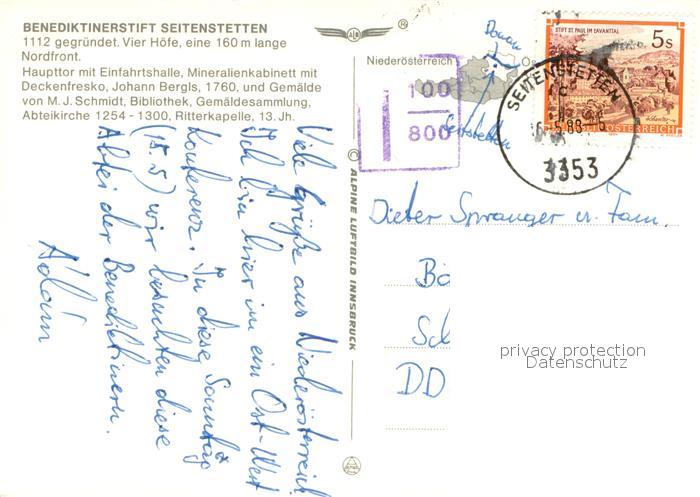 BENEDIKTINERSTIFT SEITENSTETTEN
1112 gegründet. Vier Höfe, eine 160 m lange
Nordfront.
Haupttor mit Einfahrtshalle, Mineralienkabinett mit
Deckenfresko, Johann Bergls, 1760, und Gemälde
von M. J. Schmidt, Bibliothek, Gemäldesammlung,
Abteikirche 1254 - 1300, Ritterkapelle, 13. Jh.
Viele Grüße aus Niederösterreich
Ich bin hier im ein Ost-West
Konferenz. In diese Sonntag
(15.5) wir besuchten diese
Abtei der Benediktinern.
Ádám
© ALPINE LUFTBILD INNSBRUCK
®
Niederösterreich
Donau
Seitstetten
100
800
STIFT ST. PAUL IM LAVANTTAL
5 S
REPUBLIK ÖSTERREICH
SEITENSTETTEN
5.88
3353
Dieter Spranger u. Fam.
Bö
Scl
DD
privacy protection
Datenschutz